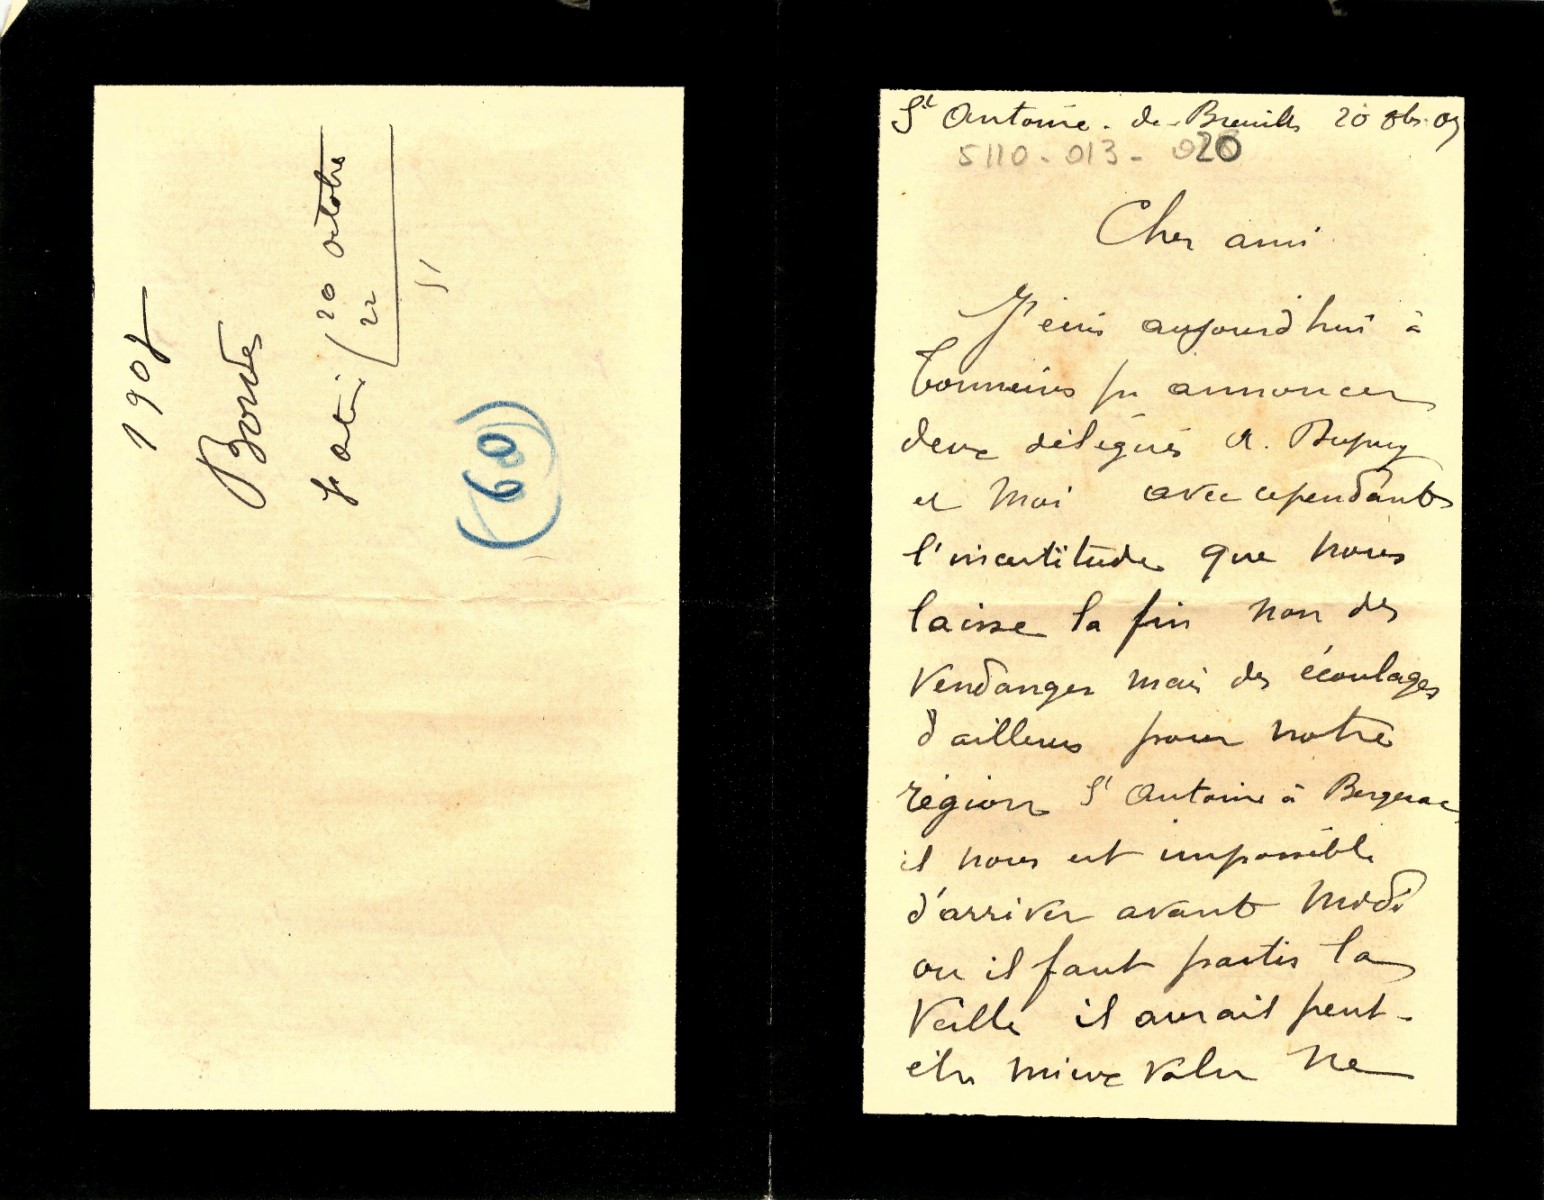 1907
Bordes
20 octobre
22
51
(60)
St Antoine - de - Breuilh 20 8bre 07
5110 - 013 - 020
Cher ami
J'écris aujourd'hui à
Tonneins pr annoncer
deux délégués A. Dupuy
et Moi avec cependant
l'incertitude que nous
laisse la fin non des
Vendanges mais des écoulages
d'ailleurs pour notre
région St Antoine à Bergerac
il nous est impossible
d'arriver avant Midi
ou il faut partir la
Veille il aurait peut-
être mieux valu ne